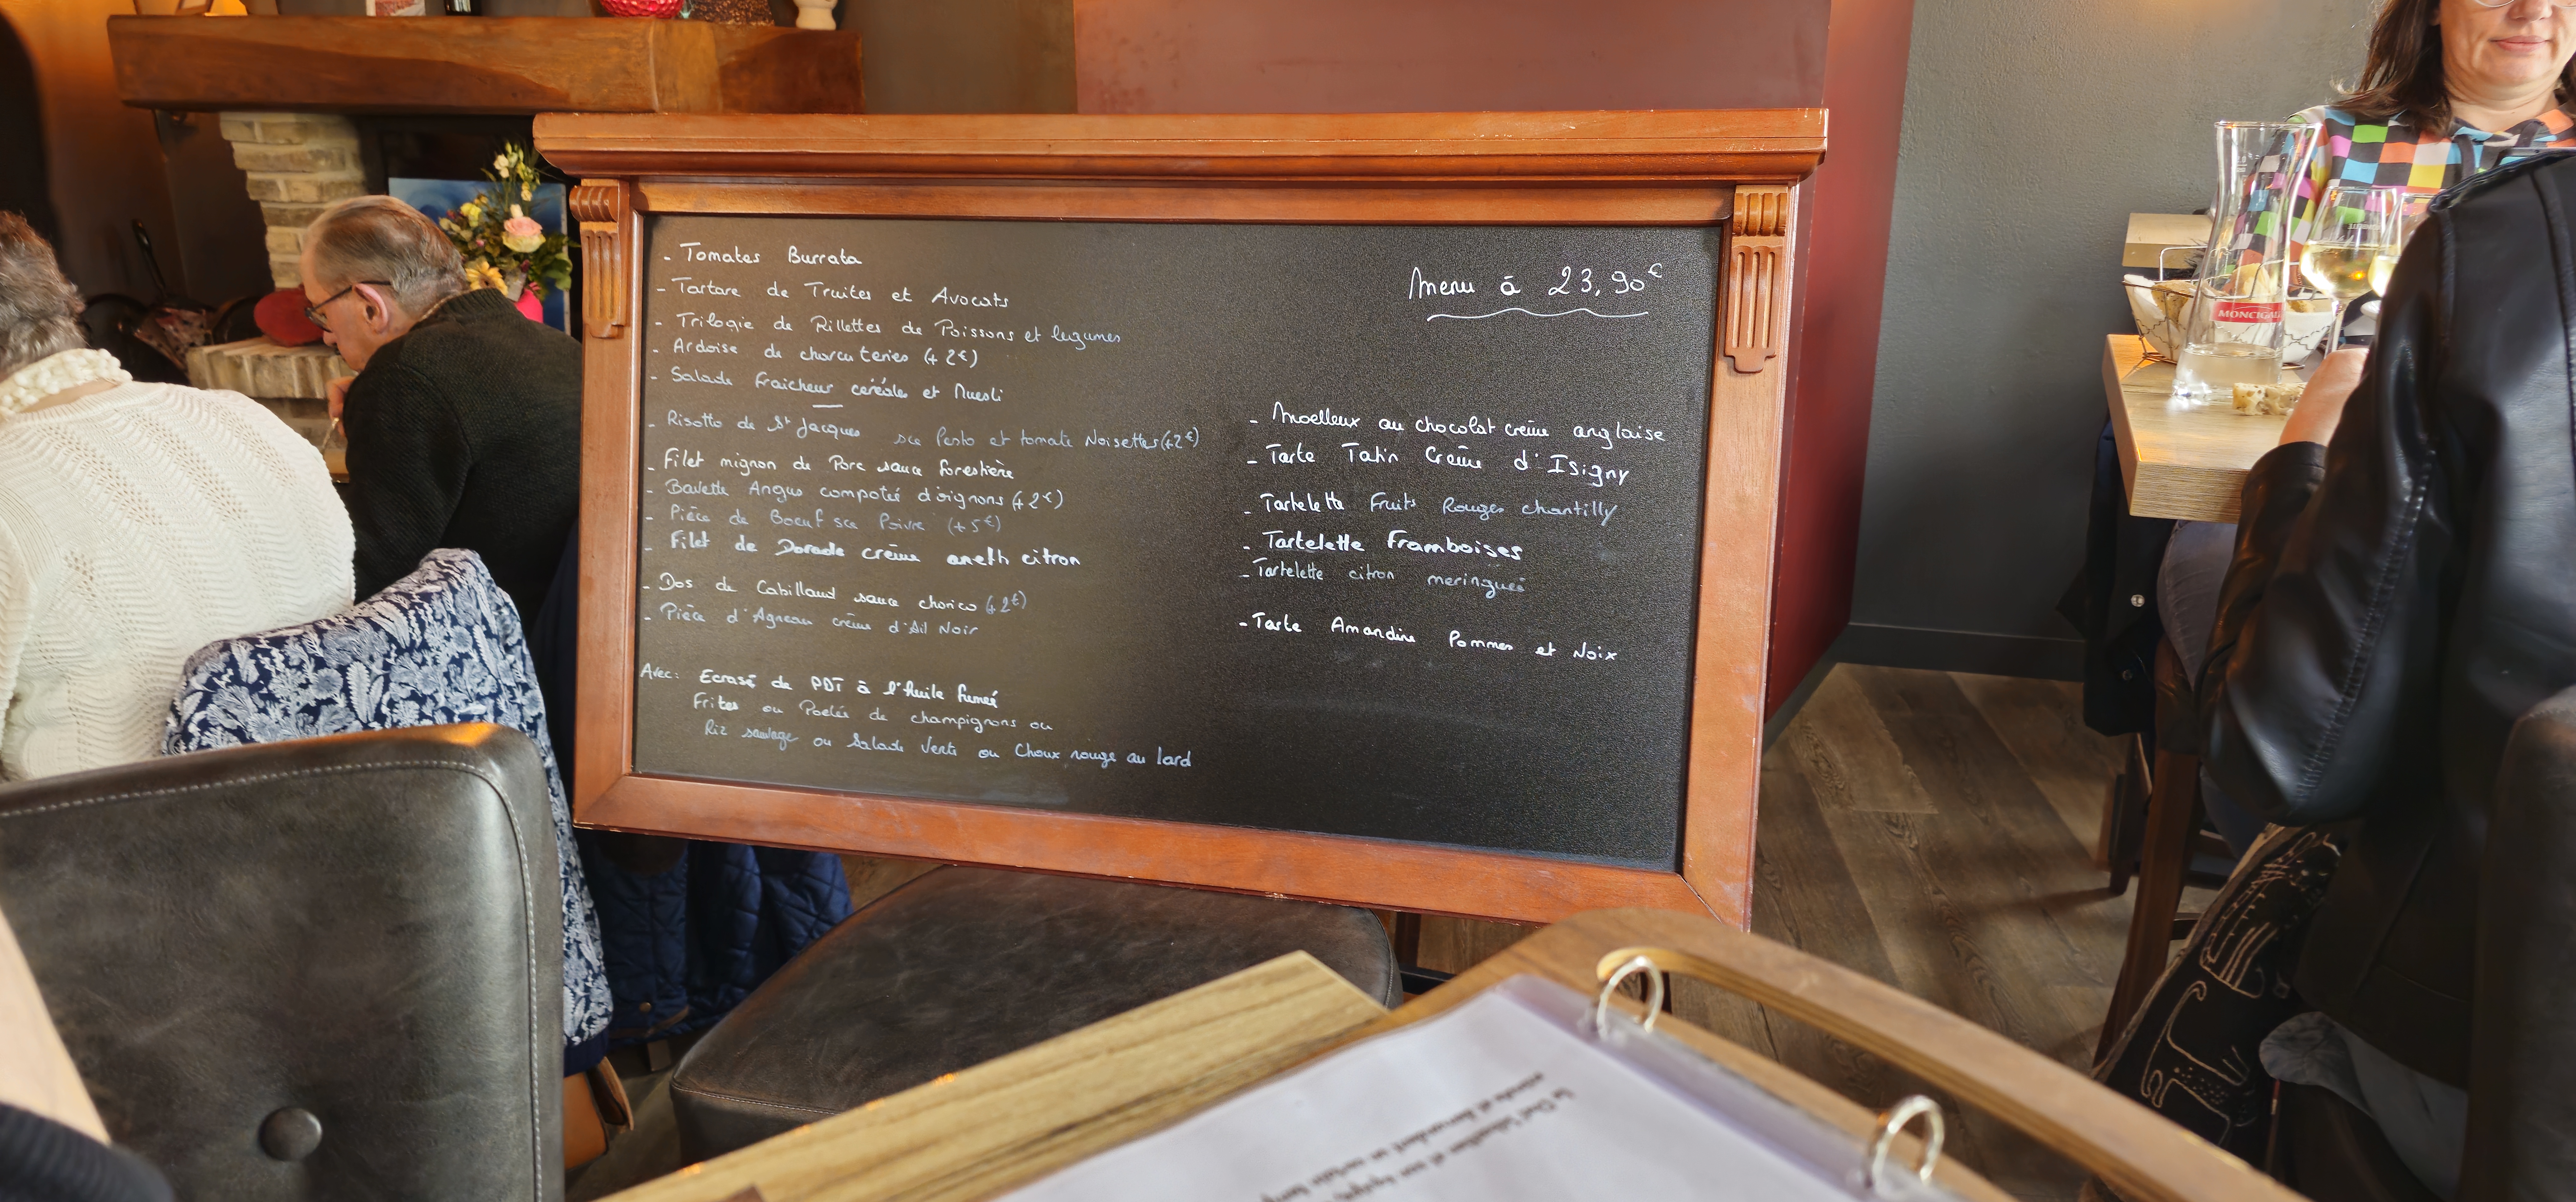 - Tomates Burrata
- Tartare de Truites et Avocats
- Trilogie de Rillettes de Poissons et legumes
- Ardoise de charcuteries (+2€)
- Salade Fraicheur céréale et Muesli
- Risotto de St Jacques sce Pesto et tomate Noisettes (+2€)
- Filet mignon de Porc sauce forestière
- Bavette Angus compotée d'oignons (+2€)
- Pièce de Boeuf sce Poivre (+5€)
- Filet de Dorade crème aneth citron
- Dos de Cabillaud sauce chorizo (+2€)
- Pièce d'Agneau crème d'Ail Noir
Avec: Ecrasé de PDT à l'huile fumée
Frites ou Poelée de champignons ou
Riz sauvage ou Salade Verte ou Choux rouge au lard
Menu à 23,90€
- Moelleux au chocolat crème anglaise
- Tarte Tatin Crème d'Isigny
- Tartelette Fruits Rouges chantilly
- Tartelette Framboises
- Tartelette citron meringuée
- Tarte Amandine Pommes et Noix
MONCIGALE